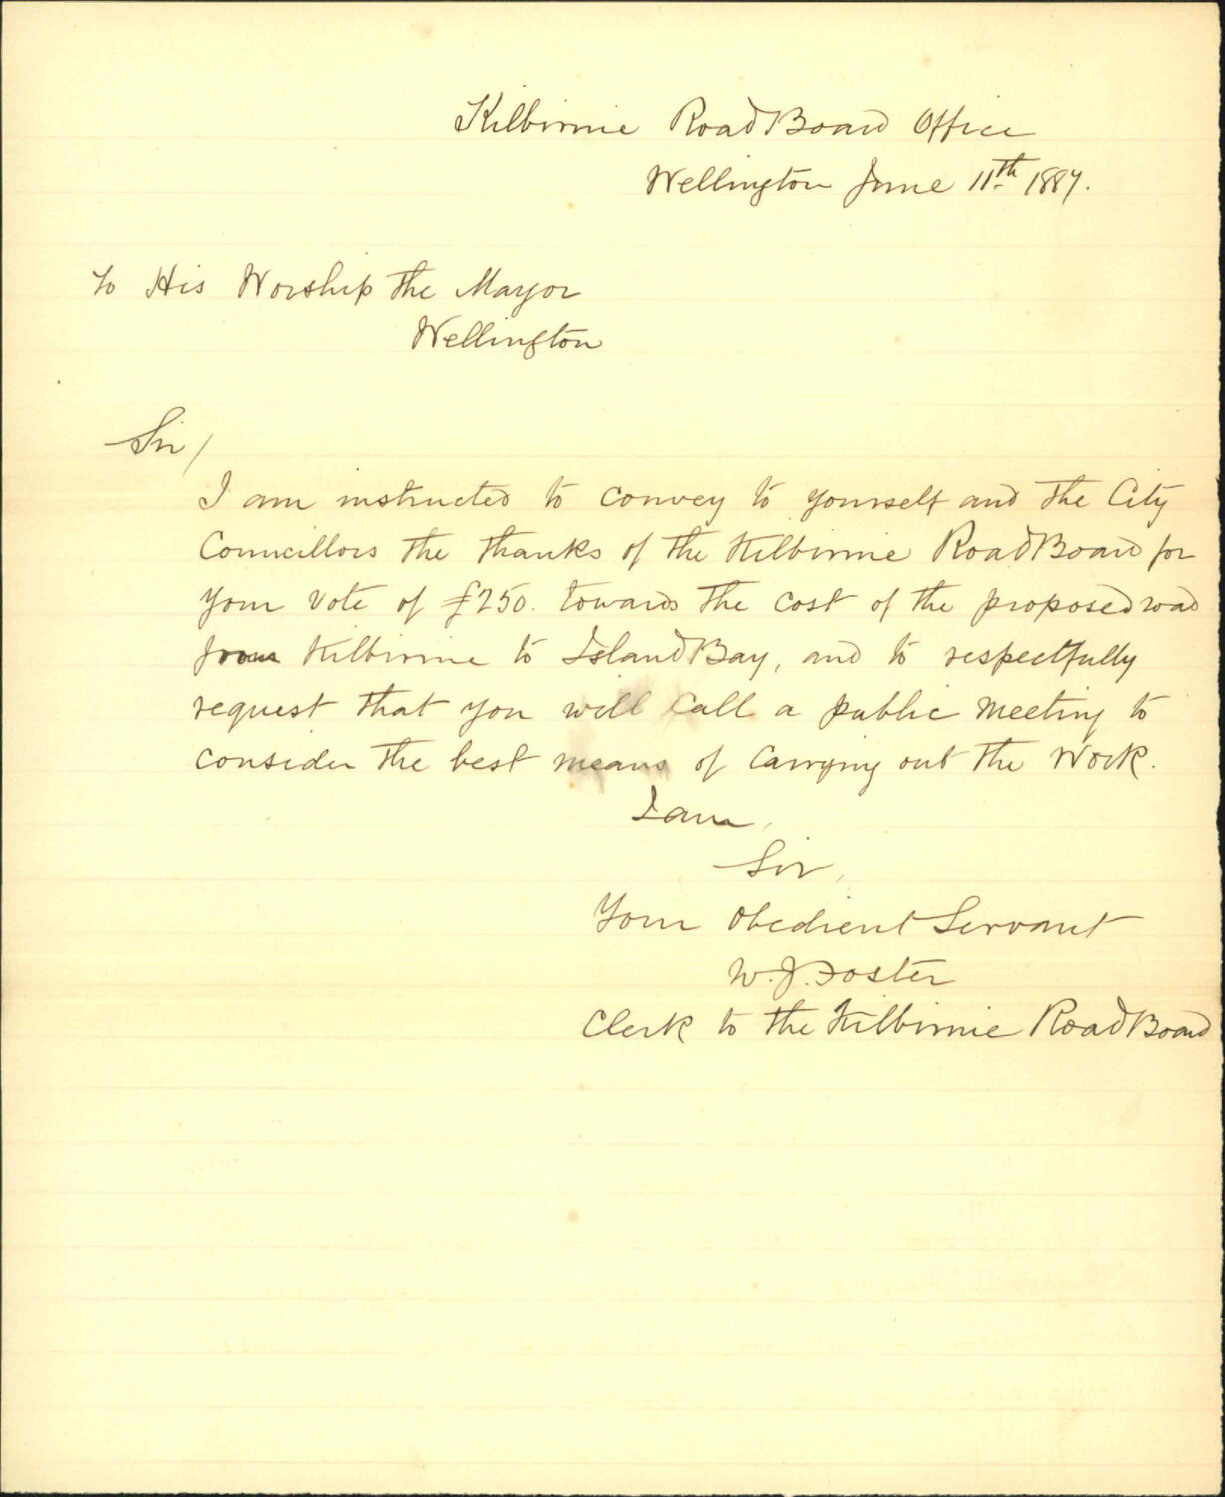 Kilbirnie Road Board Office
Wellington June 11th 1887.
To His Worship the Mayor
Wellington
Sir/
I am instructed to convey to yourself and the City
Councillors the thanks of the Kilbirnie Road Board for
your vote of £250. towards the cost of the proposed road
from Kilbirnie to Island Bay, and to respectfully
request that you will call a public meeting to
consider the best means of carrying out the work.
I am,
Sir,
Your Obedient Servant
W. J. Foster
Clerk to the Kilbirnie Road Board